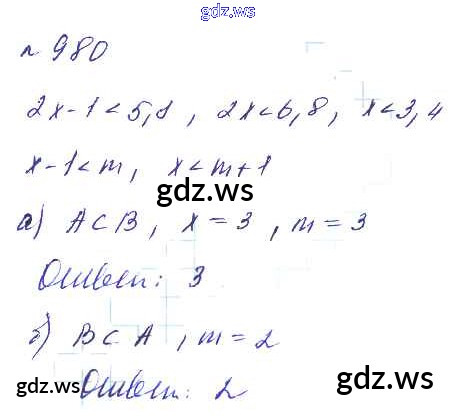 gdz.ws
n 980
2x-1<5,8, 2x<6,8, x<3,4
x-1<m, x<m+1
gdz.ws
а) A⊂B, x=3, m=3
Ответ: 3
gdz.ws
б) B⊂A, m=2
Ответ: 2
gdz.ws gdz.ws